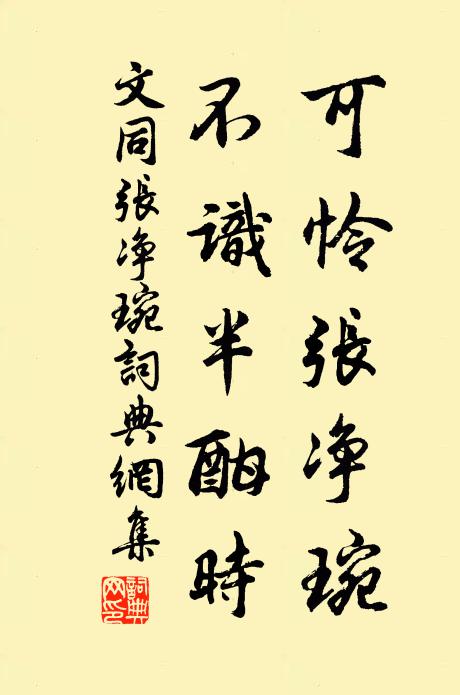 可怜張净琬
不識半酣時
文同張净琬詞典網集
詞典網印